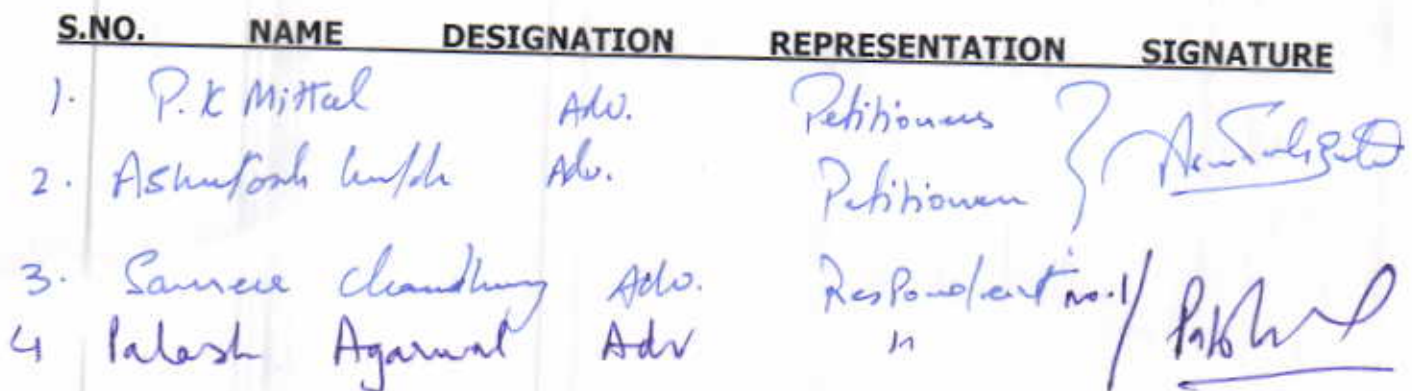 S.NO. NAME DESIGNATION REPRESENTATION SIGNATURE
1. P. K Mittal Adv. Petitioners
2. Ashutosh Gupta Adv. Petitioner
3. Chaudhury Adv. Respondent no.1/
4 Palash Agarwal Adv "